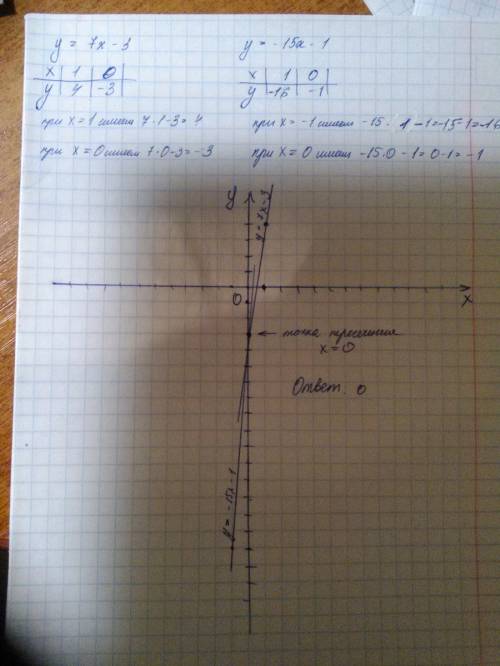 y = 7x - 3
x | 1 | 0
y | 4 | -3
при x = 1 имеем 7·1-3 = 4
при x = 0 имеем 7·0-3 = -3
y = -15x - 1
x | 1 | 0
y | -16 | -1
при x = -1 имеем -15·1-1=-15-1=-16
при x = 0 имеем -15·0-1=0-1=-1
y
y = 7x-3
0
x
← точка пересечения
x = 0
Ответ: 0
y = -15x-1